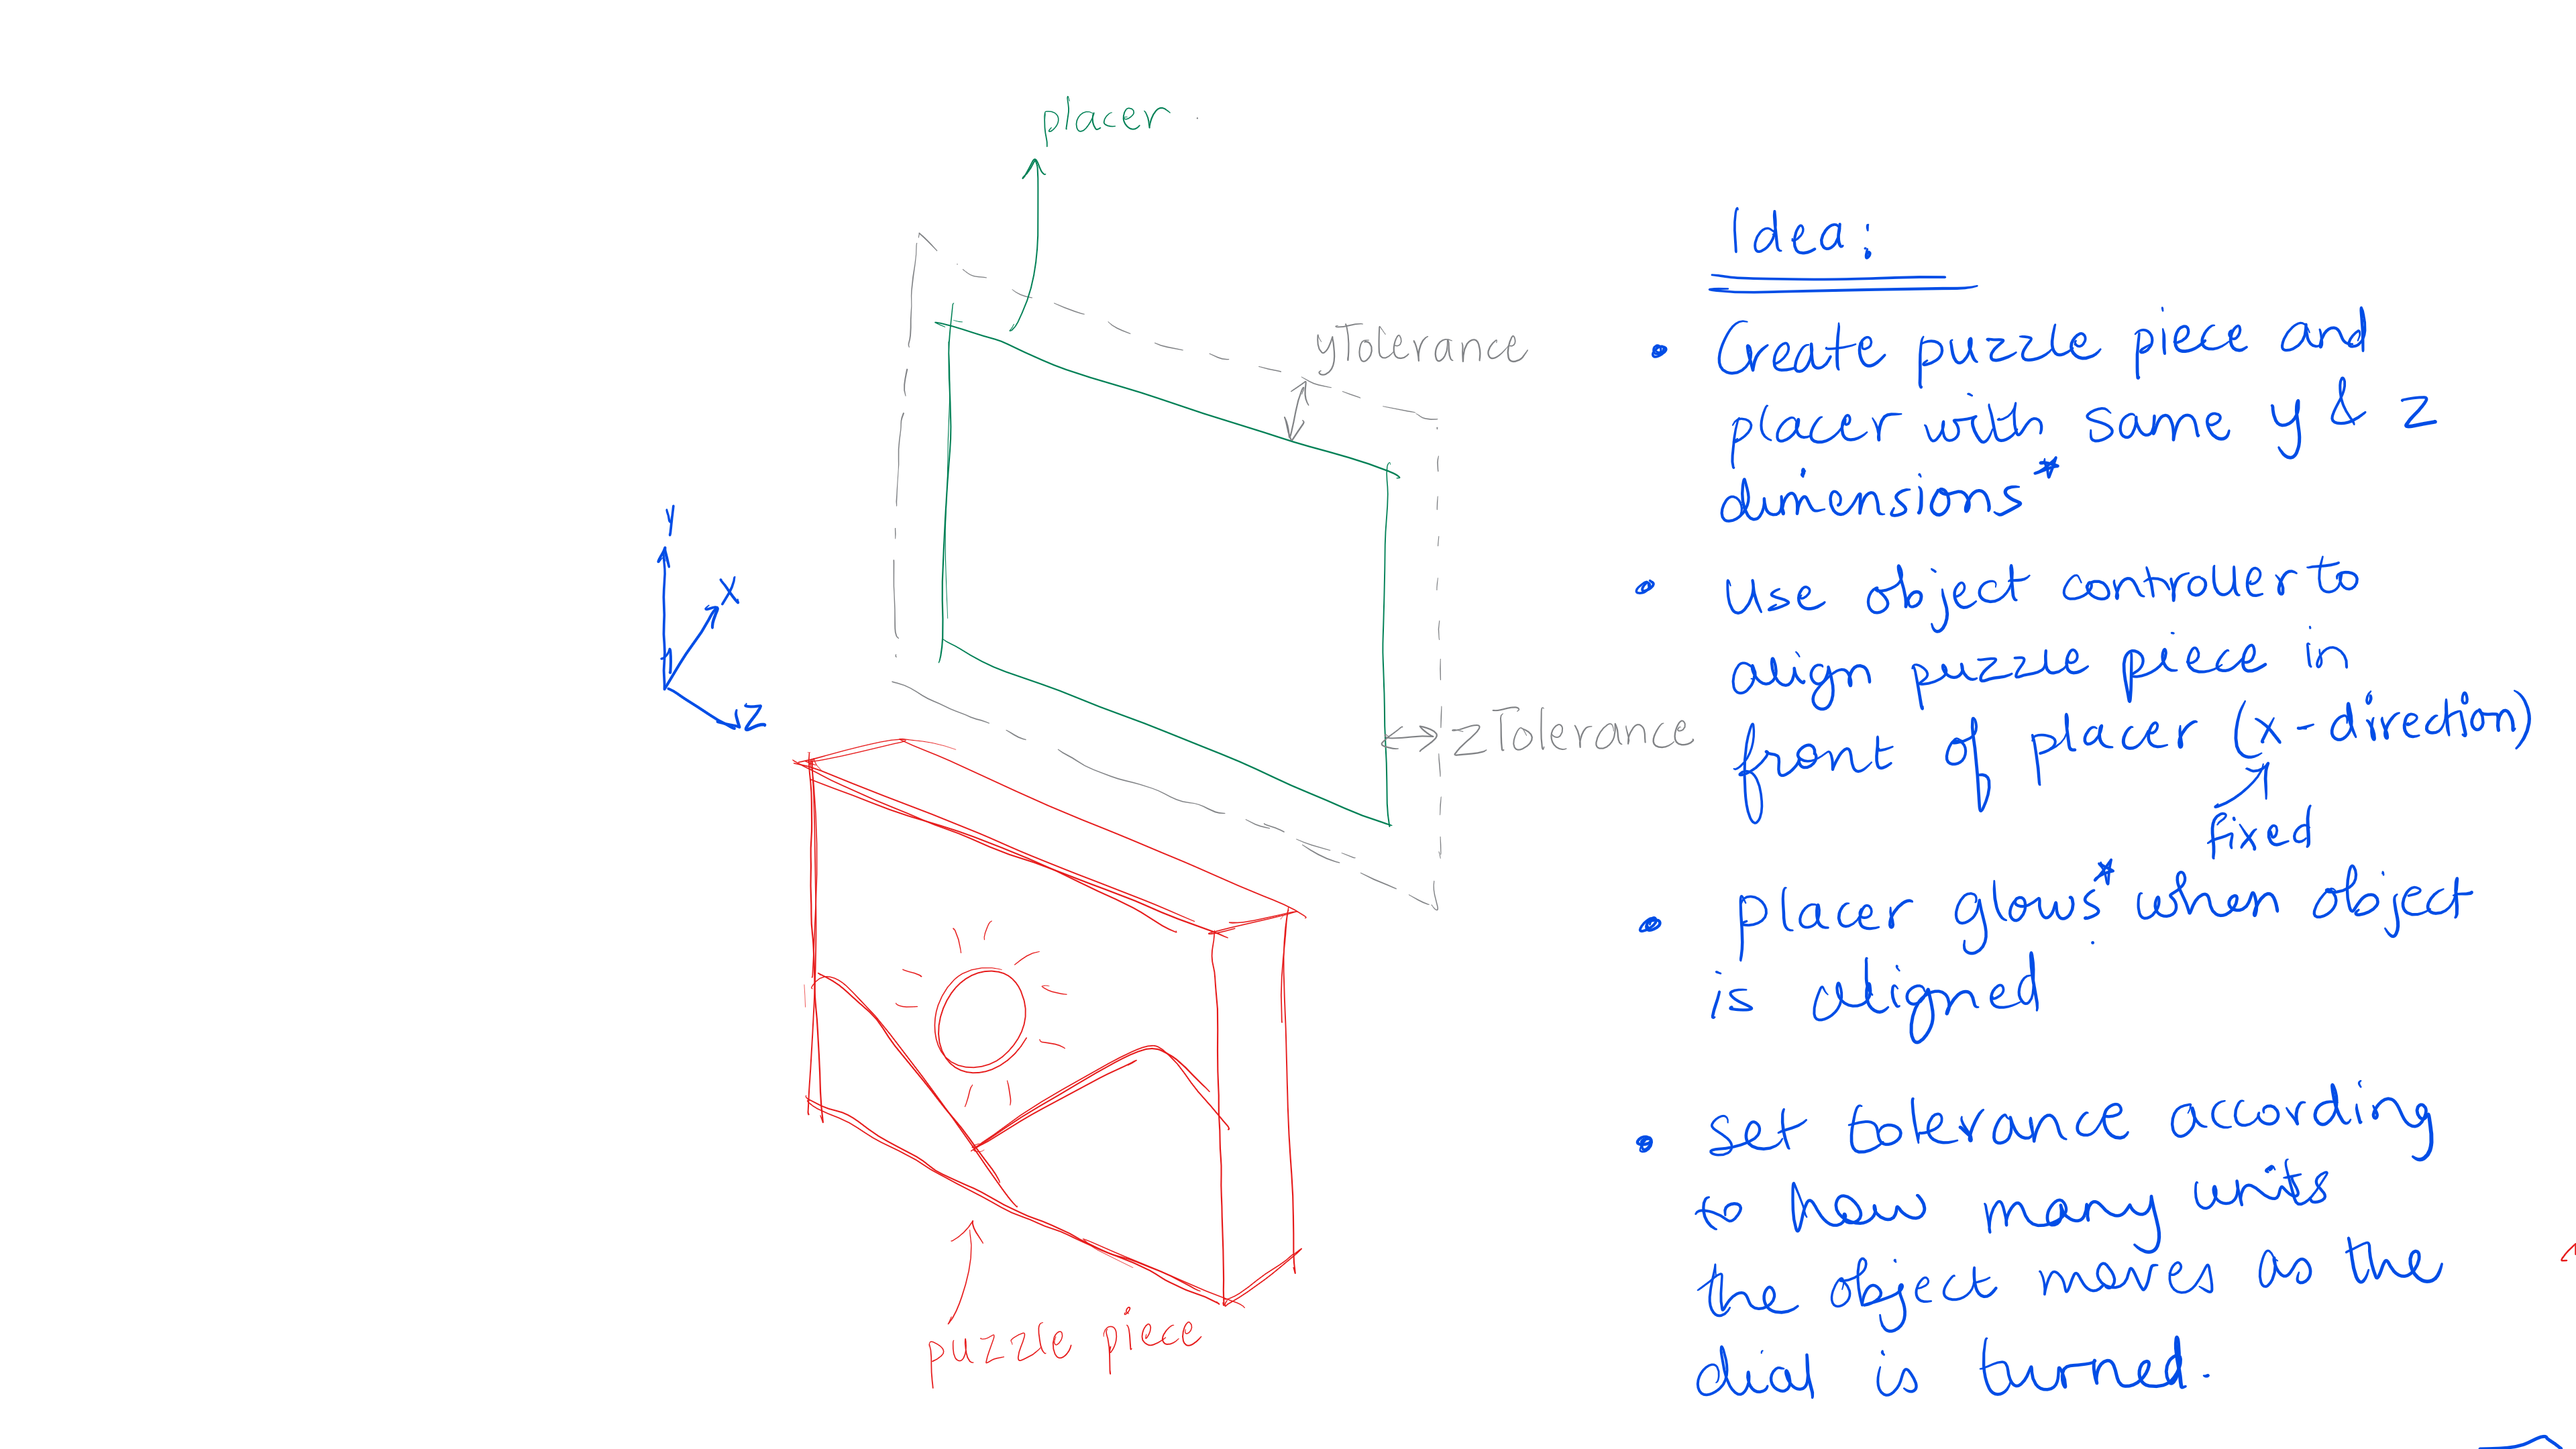 placer
yTolerance
Y
X
Z
zTolerance
puzzle piece
Idea:
• Create puzzle piece and
placer with same y & z
dimensions*
• Use object controller to
align puzzle piece in
front of placer (x-direction)
fixed
• placer glows* when object
is aligned
• set tolerance according
to how many units
the object moves as the
dial is turned.